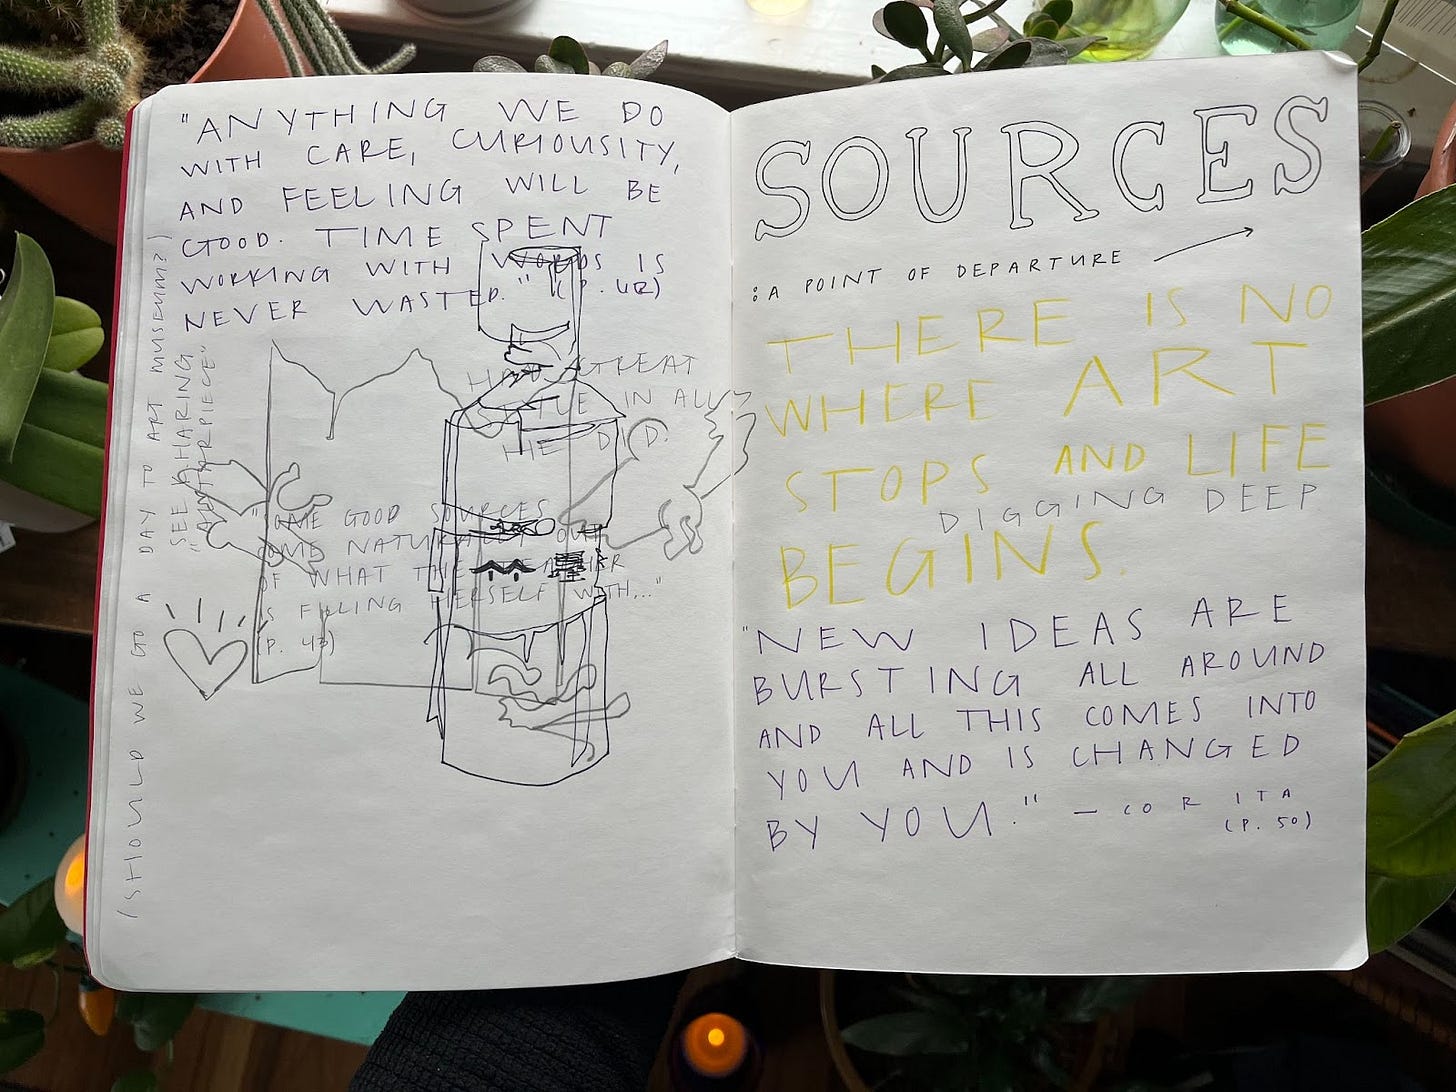 "ANYTHING WE DO
WITH CARE, CURIOUSITY,
AND FEELING WILL BE
GOOD. TIME SPENT
WORKING WITH WORDS IS
NEVER WASTED." (P. 42)
HAD GREAT
IN ALL
HE DID.
"SOME GOOD SOURCES
COME NATURALLY OUT
OF WHAT THE TEACHER
IS FILLING HERSELF WITH..."
(P. 43)
(SHOULD WE GO A DAY TO ART MUSEUM?)
SEE HARING
"ALTARPIECE"
SOURCES
: A POINT OF DEPARTURE
THERE IS NO
WHERE ART
STOPS AND LIFE
DIGGING DEEP
BEGINS.
"NEW IDEAS ARE
BURSTING ALL AROUND
AND ALL THIS COMES INTO
YOU AND IS CHANGED
BY YOU." — CORITA
(P. 50)